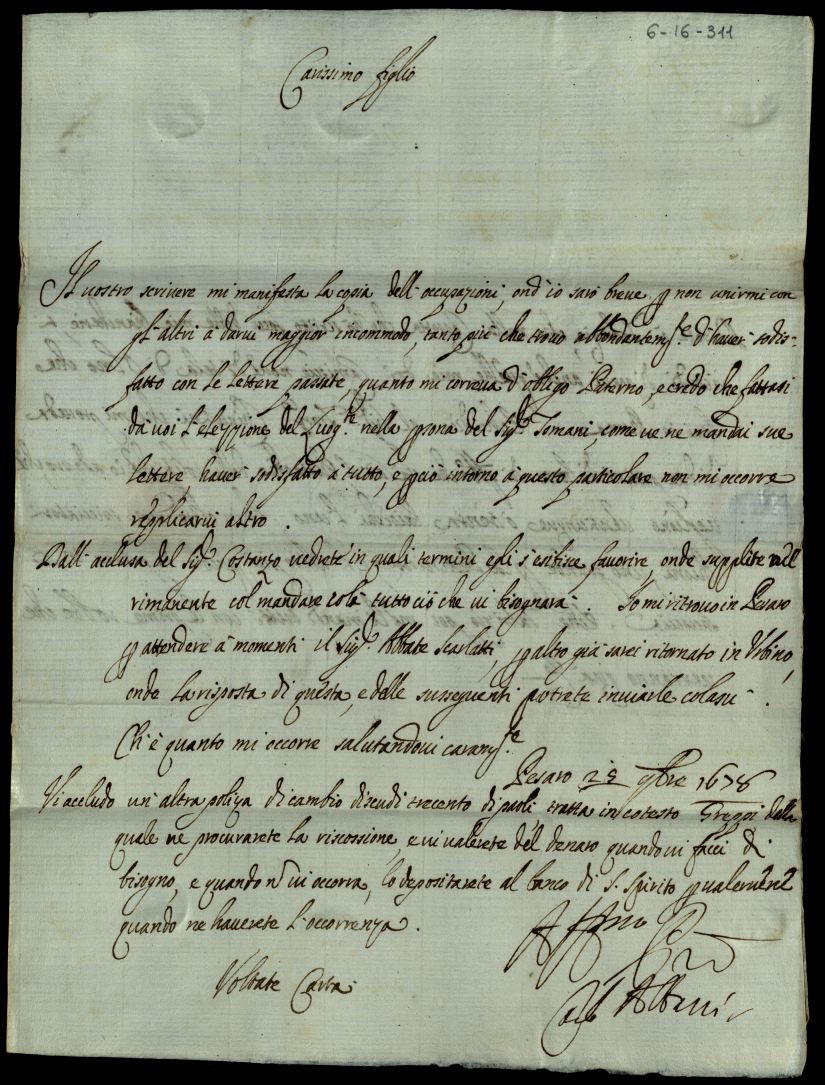 6-16-311
Carissimo figlio
Il vostro scrivere mi manifesta la copia dell'occupazioni, ond'io sarò breve p non unirmi con
gl'altri à darvi maggior incommodo, tanto più che trovo abbondantemte d'haver sodis-
fatto con le lettere passate, quanto mi correva d'obligo Paterno, e credo che fattasi
da voi l'elezzione del Luogte nella prona del Sigr Tomani, come ve ne mandai sue
lettere, haver sodisfatto à tutto, e pciò intorno à questo particolare non mi occorre
replicarvi altro.
Dall'acclusa del Sigr Costanzo vedrete in quali termini egli s'esibisce favorire, onde supplite nell
rimanente col mandare colà tutto ciò che vi bisognarà. Io mi ritrovo in Pesaro
p attendere à momenti il Sigr Abbate Scarlatti, p altro già sarei ritornato in Urbino,
onde la risposta di questa, e delle susseguenti potrete inviarle colasù.
Ch'è quanto mi occorre salutandovi caramte
Pesaro 28 9bre 1678
Vi accludo un'altra poliza di cambio di scudi trecento di paoli, tratta in cotesto Greppi della
quale ne procurarete la riscossione, e vi valerete del denaro quando vi facci di
bisogno, e quando nō vi occorra, lo depositarete al banco di S. Spirito p valervene
quando ne haverete l'occorrenza.
Affmo Pre
Carlo Albani
Voltate Carta